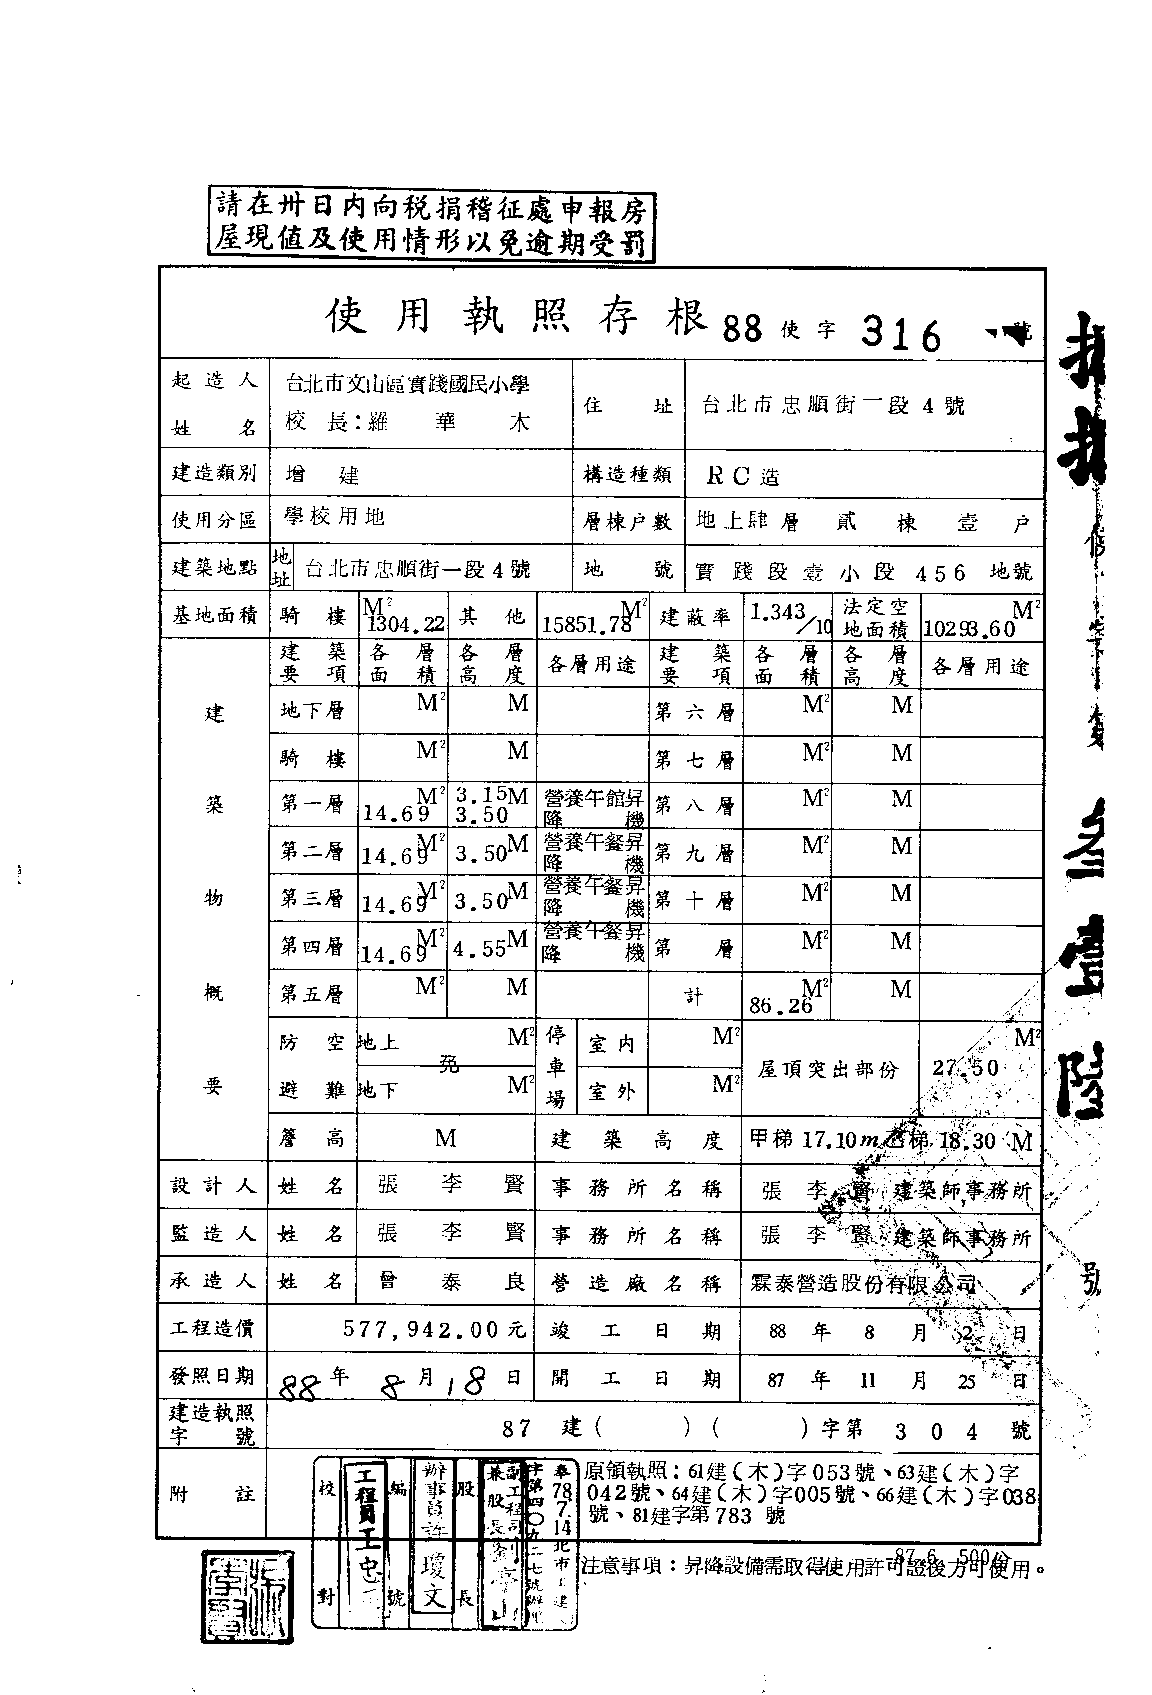 請在卅日內向稅捐稽征處申報房
屋現值及使用情形以免逾期受罰
使用執照存根 88 使字 316 號
起造人 姓名 台北市文山區實踐國民小學 校長:羅華木 住址 台北市忠順街一段4號
建造類別 增建 構造種類 RC造
使用分區 學校用地 層棟戶數 地上肆層貳棟壹戶
建築地點 地址 台北市忠順街一段4號 地號 實踐段壹小段456地號
基地面積 騎樓 M² 1304.22 其他 M² 15851.78 建蔽率 1.343/10 法定空地面積 M² 10293.60
建築物概要
建築要項 各層面積 各層高度 各層用途 建築要項 各層面積 各層高度 各層用途
地下層 M² M 第六層 M² M
騎樓 M² M 第七層 M² M
第一層 M² 14.69 3.15M 3.50 營養午館昇降機 第八層 M² M
第二層 M² 14.69 3.50M 營養午餐昇降機 第九層 M² M
第三層 M² 14.69 3.50M 營養午餐昇降機 第十層 M² M
第四層 M² 14.69 4.55M 營養午餐昇降機 第 層 M² M
第五層 M² M 計 M² 86.26 M
防空避難 地上 M² 免 地下 M² 停車場 室內 M² 室外 M² 屋頂突出部份 27.50 M²
簷高 M 建築高度 甲梯17.10m乙梯18.30 M
設計人 姓名 張李賢 事務所名稱 張李賢建築師事務所
監造人 姓名 張李賢 事務所名稱 張李賢建築師事務所
承造人 姓名 曾泰良 營造廠名稱 霖泰營造股份有限公司
工程造價 577,942.00元 竣工日期 88年8月2日
發照日期 88年8月18日 開工日期 87年11月25日
建造執照字號 87建( )( )字第304號
附註 原領執照:61建(木)字053號、63建(木)字
042號、64建(木)字005號、66建(木)字038
號、81建字第783號
校對
編號
辦事員許瓊文
股長
87.6. 500份
注意事項:昇降設備需取得使用許可證後方可使用。
叁壹陸號